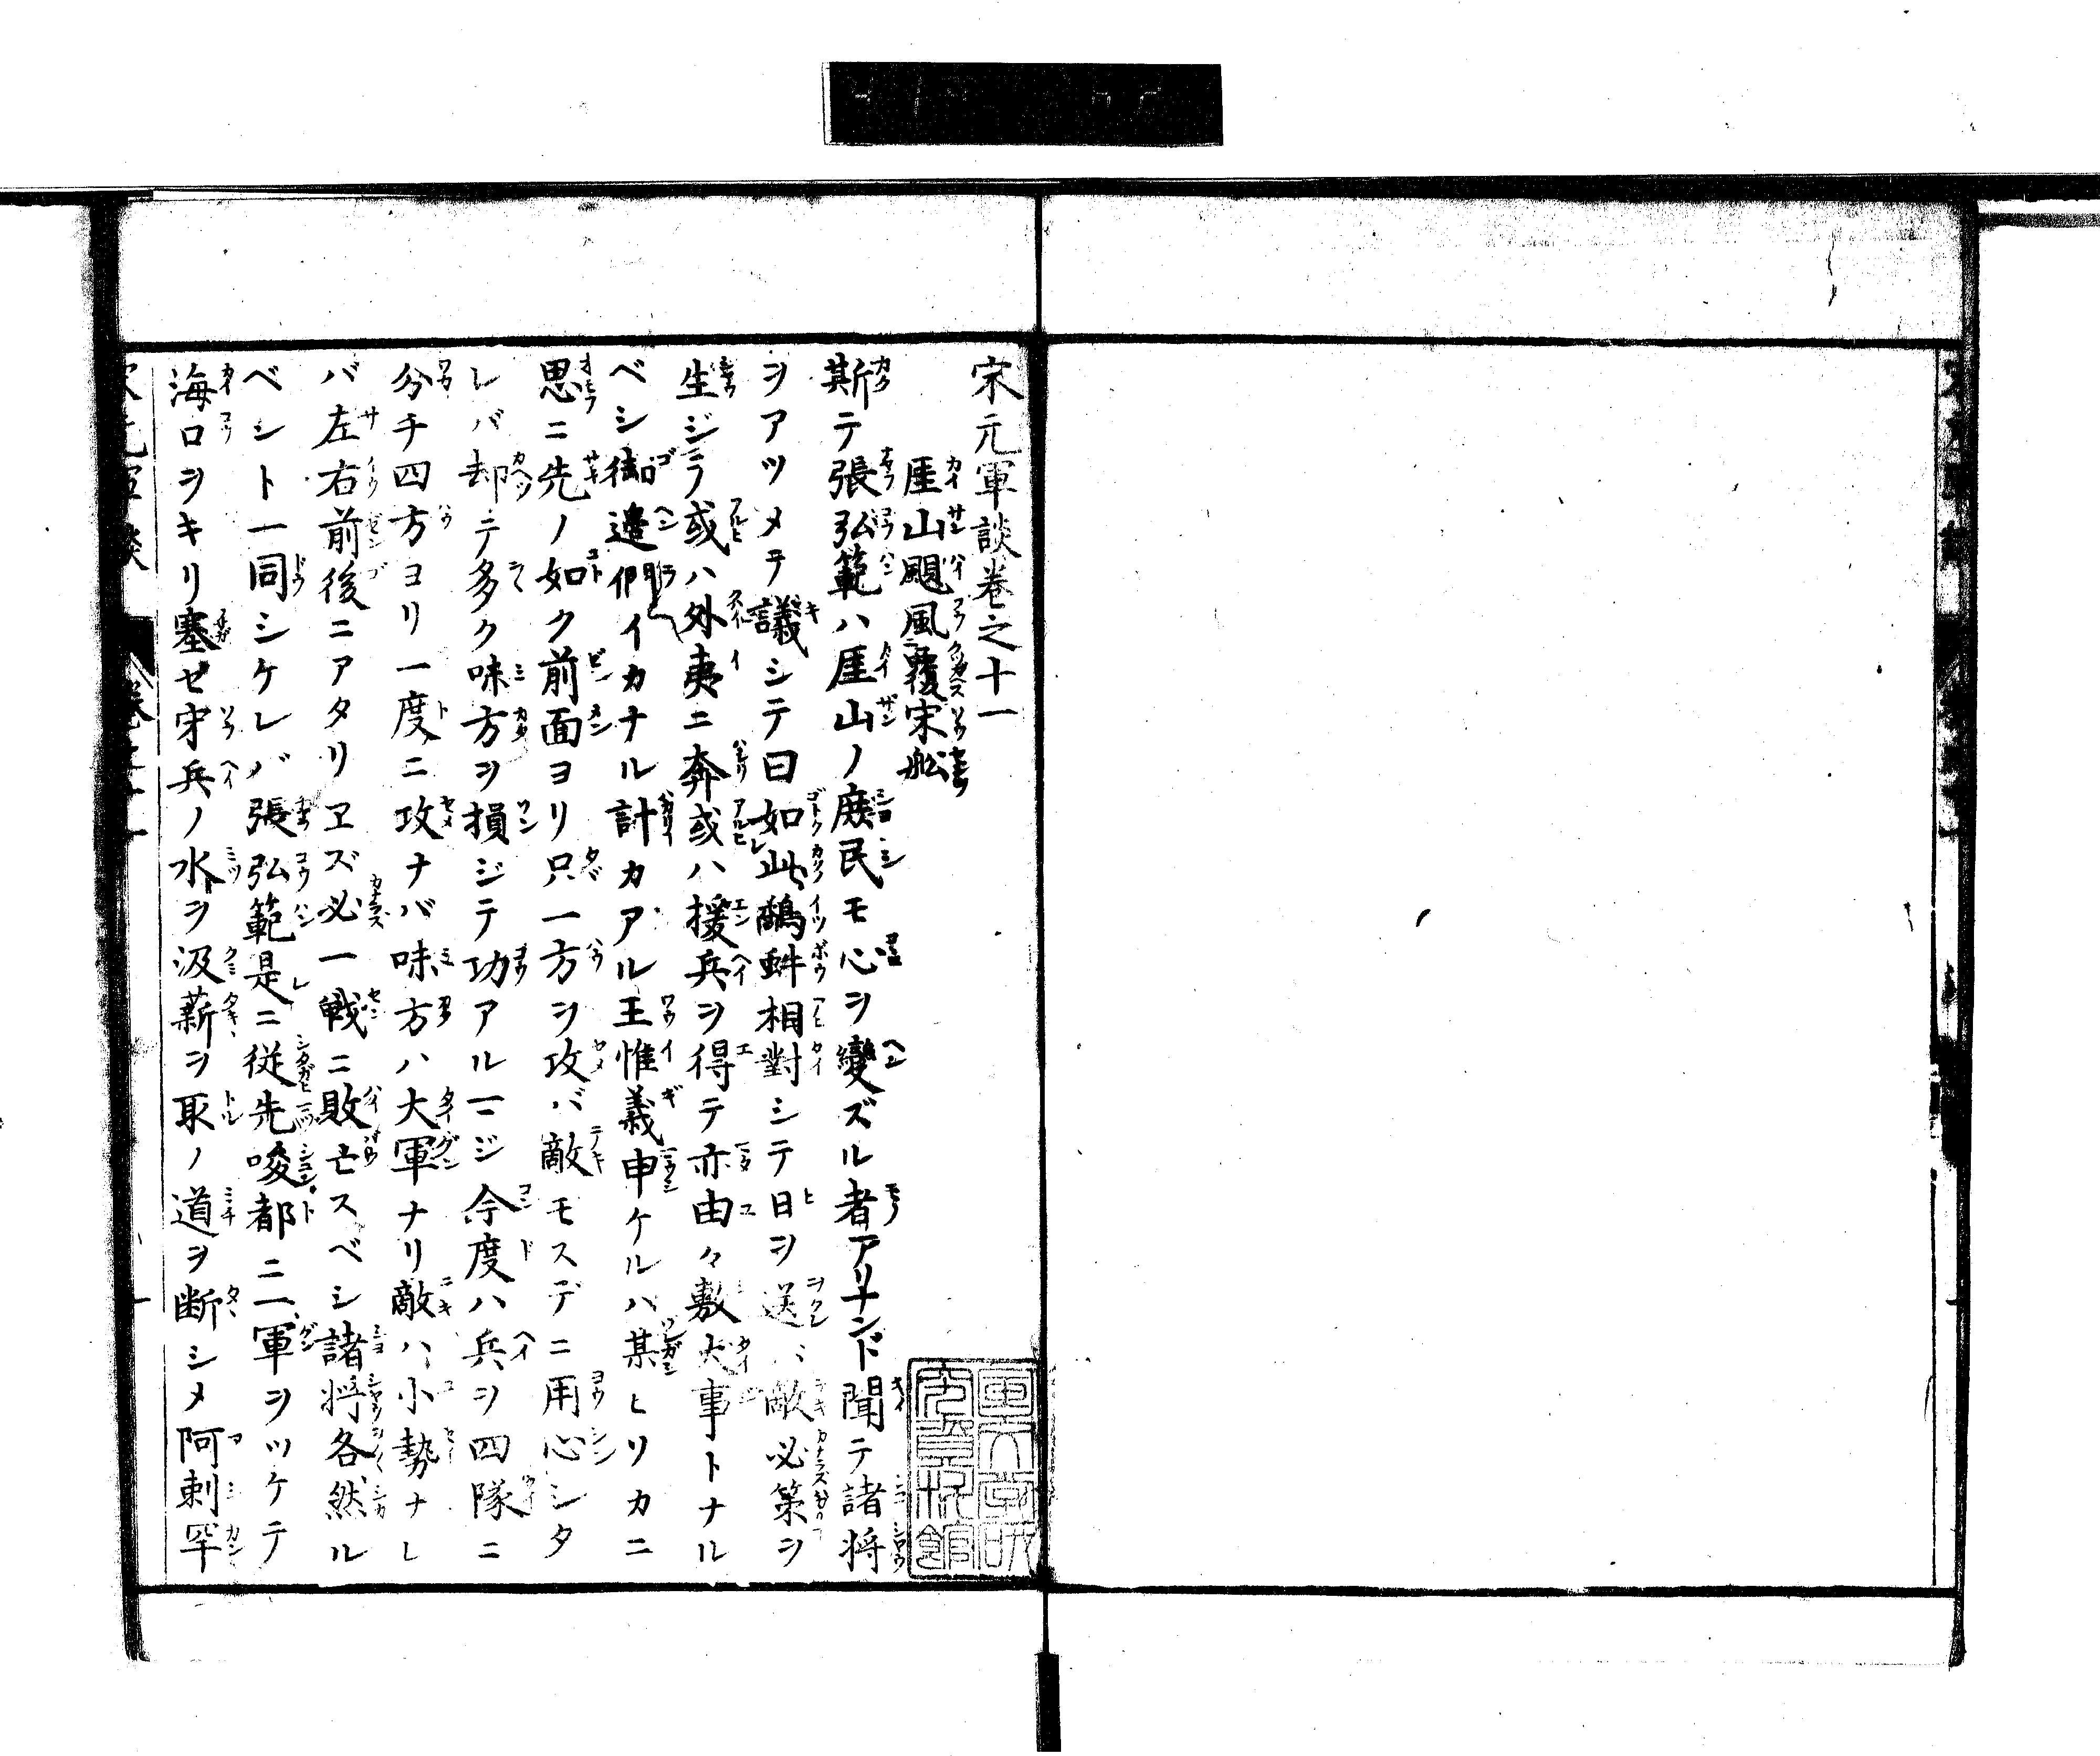 宋元軍談巻之十一
厓山颶風覆宋舩
斯テ張弘範ハ厓山ノ庶民モ心ヲ變ズル者アリナンド聞テ諸将
ヲアツメテ議シテ曰如此鷸蚌相對シテ日ヲ送ヽ敵必策ヲ
生ジテ或ハ外夷ニ奔或ハ援兵ヲ得テ亦由々敷大事トナル
ベシ御邉們イカナル計カアル王惟義申ケルハ某ヒソカニ
思ニ先ノ如ク前面ヨリ只一方ヲ攻バ敵モスデニ用心シタ
レバ却テ多ク味方ヲ損ジテ功アルマジ今度ハ兵ヲ四隊ニ
分チ四方ヨリ一度ニ攻ナバ味方ハ大軍ナリ敵ハ小勢ナレ
バ左右前後ニアタリヱズ必一戦ニ敗亡スベシ諸将各然ル
ベシト一同シケレバ張弘範是ニ従先唆都ニ一軍ヲツケテ
海口ヲキリ塞ゼ宋兵ノ水ヲ汲薪ヲ取ノ道ヲ断シメ阿剌罕